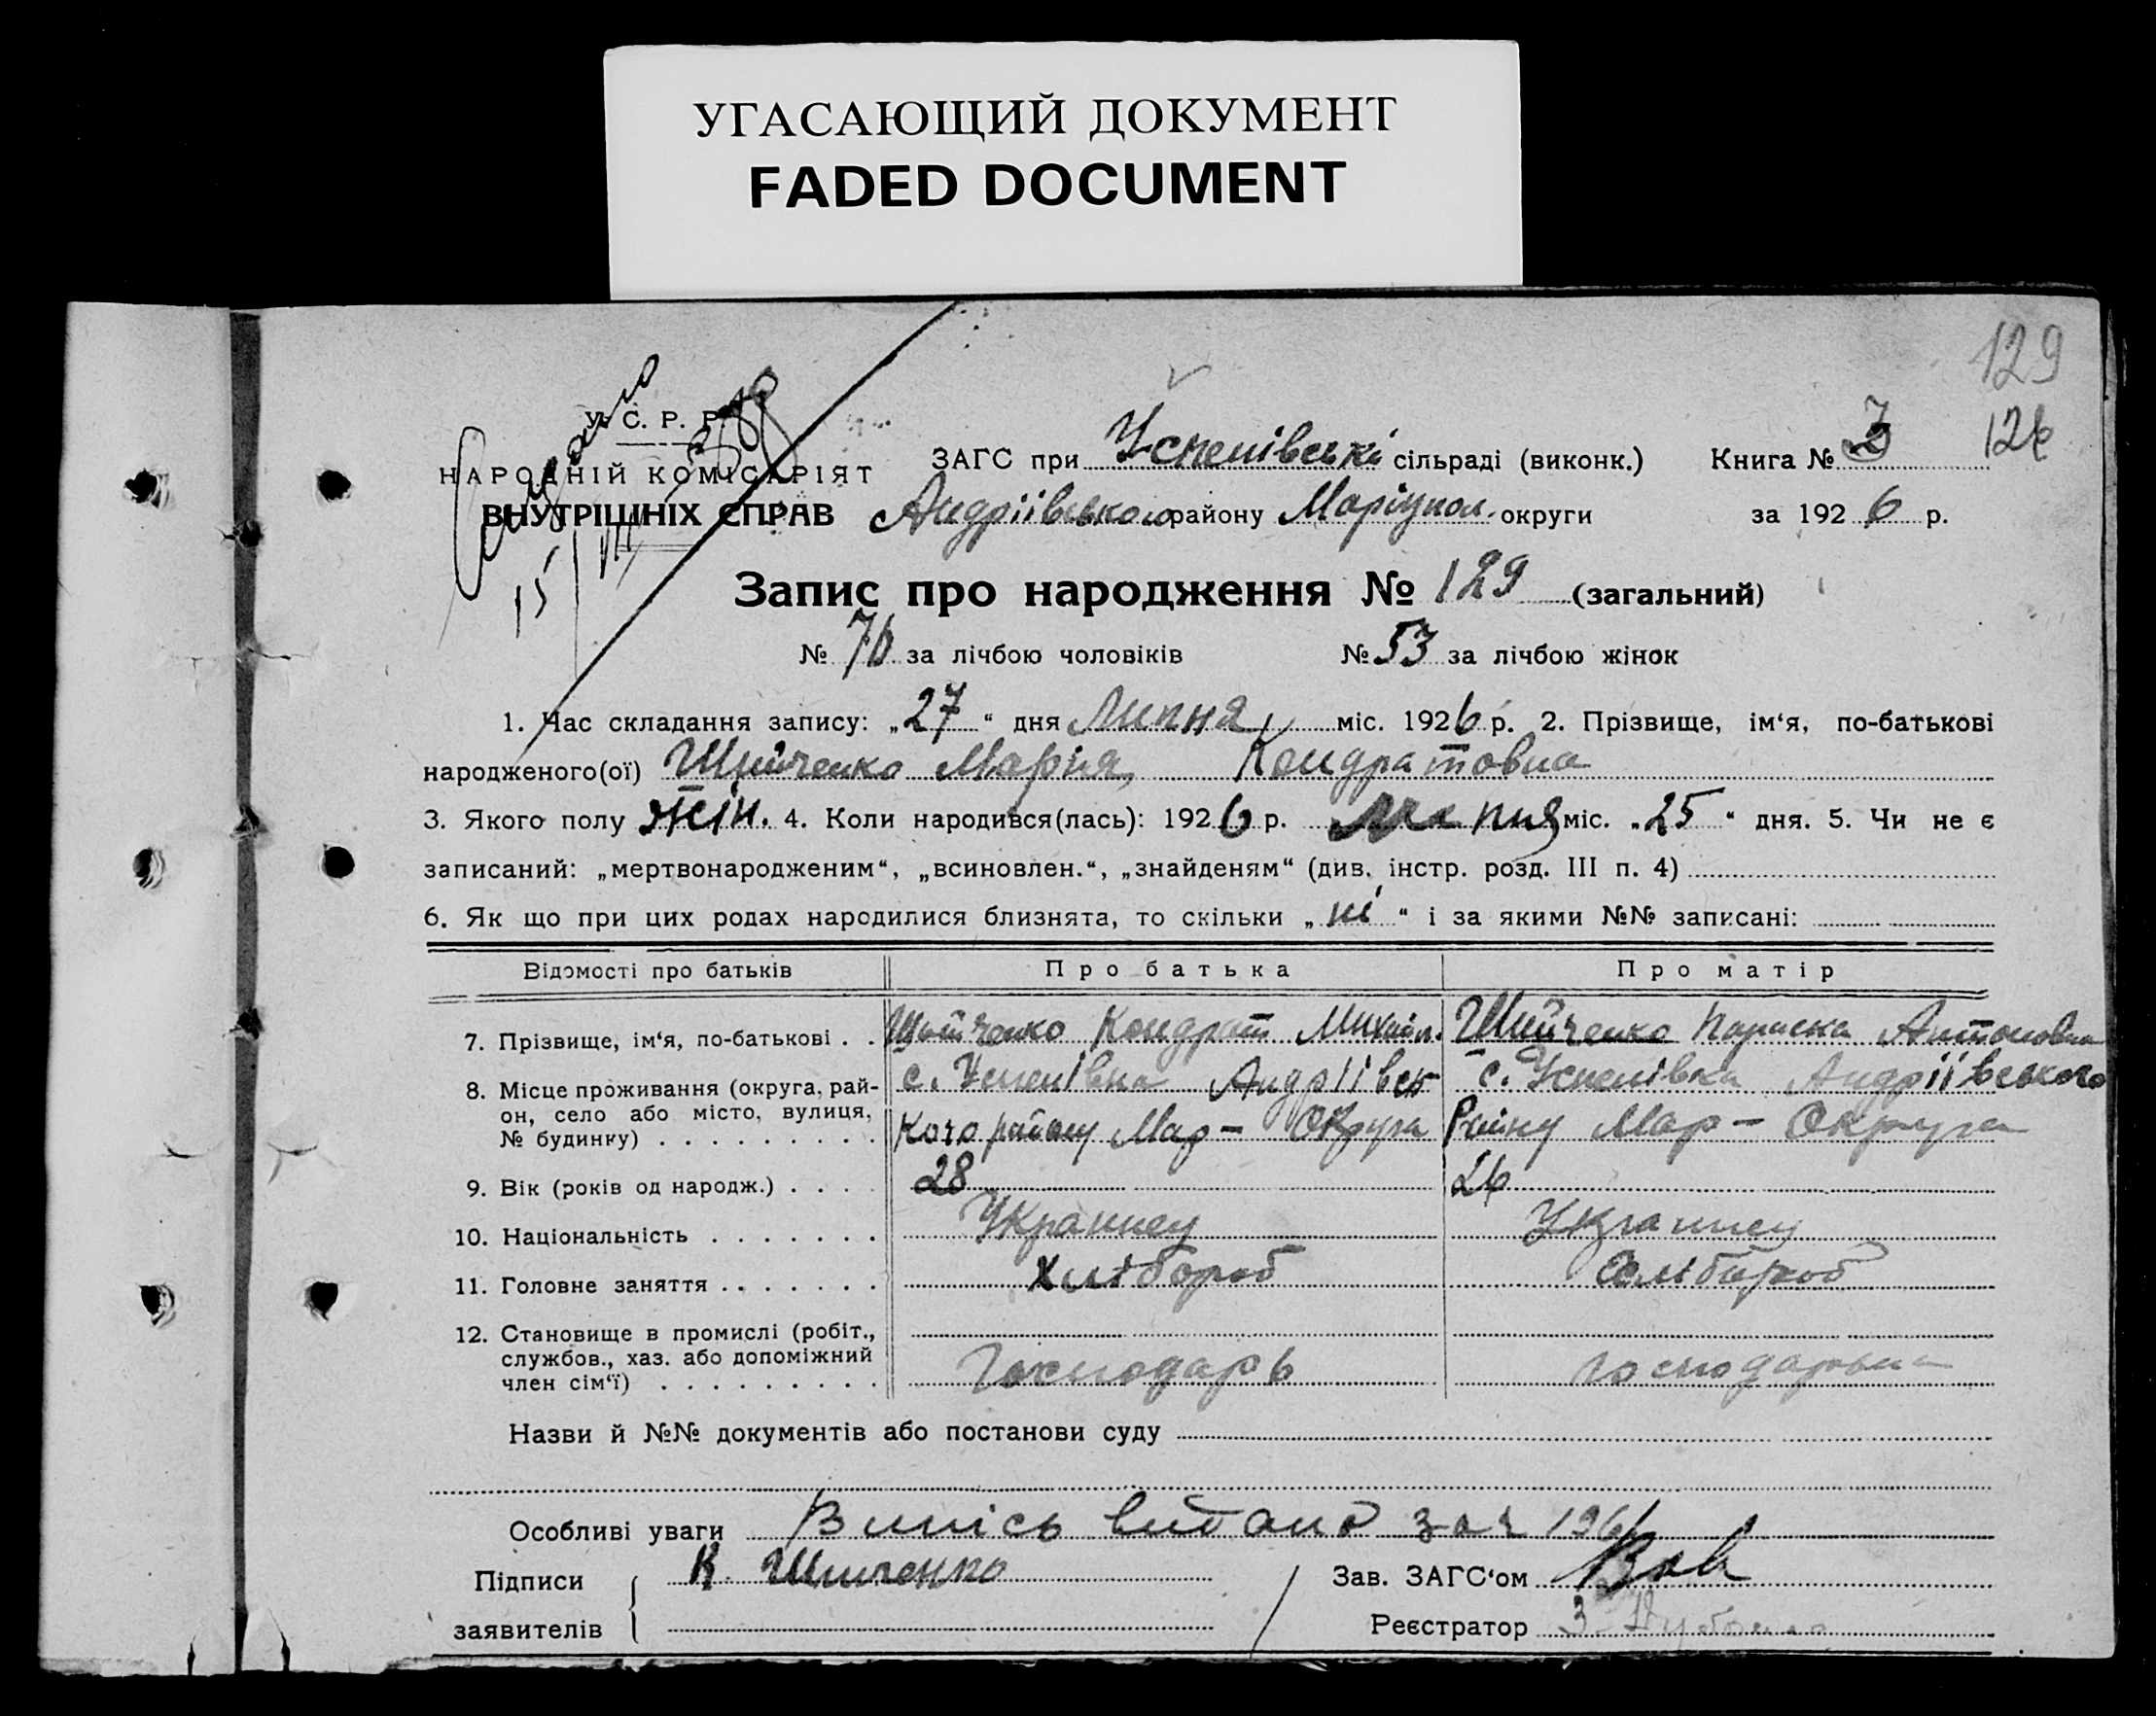 УГАСАЮЩИЙ ДОКУМЕНТ
FADED DOCUMENT
129
126
У. С. Р. Р.
НАРОДНІЙ КОМІСАРІЯТ
ВНУТРІШНІХ СПРАВ
15/III
ЗАГС при Успенівські сільраді (виконк.) Книга №
Андріівського району Маріупол. округи за 1926 р.
Запис про народження № 129 (загальний)
№ 76 за лічбою чоловіків № 53 за лічбою жінок
1. Час складання запису: „27“ дня Липня міс. 1926 р. 2. Прізвище, ім‘я, по-батькові
народженого(ої) Шийченко Мария Кондратовна
3. Якого полу жін. 4. Коли народився(лась): 1926 р. Липня міс. „25“ дня. 5. Чи не є
записаний: „мертвонародженим“, „всиновлен.“, „знайденям“ (див. інстр. розд. III п. 4)
6. Як що при цих родах народилися близнята, то скільки „ні“ і за якими №№ записані:
Відомості про батьків Про батька Про матір
7. Прізвище, ім‘я, по-батькові . . Шийченко Кондрат Михайл. Шийченко Параска Антоновна
8. Місце проживання (округа, рай- с. Успенівка Андріівсь с. Успенівка Андріівського
он, село або місто, вулиця,
№ будинку) . . . . . . . . . кого району Мар – Округа Району Мар – Округа
9. Вік (років од народж.) . . . . 28 26
10. Національність . . . . . . . Украинец Украинец
11. Головне заняття . . . . . . . Хлібороб Хлібороб
12. Становище в промислі (робіт.,
службов., хаз. або допоміжний
член сім‘ї) . . . . . . . . . Господарь господарька
Назви й №№ документів або постанови суду
Особливі уваги Випісь видано
Підписи К. Шиченко Зав. ЗАГС‘ом
заявителів Реєстратор